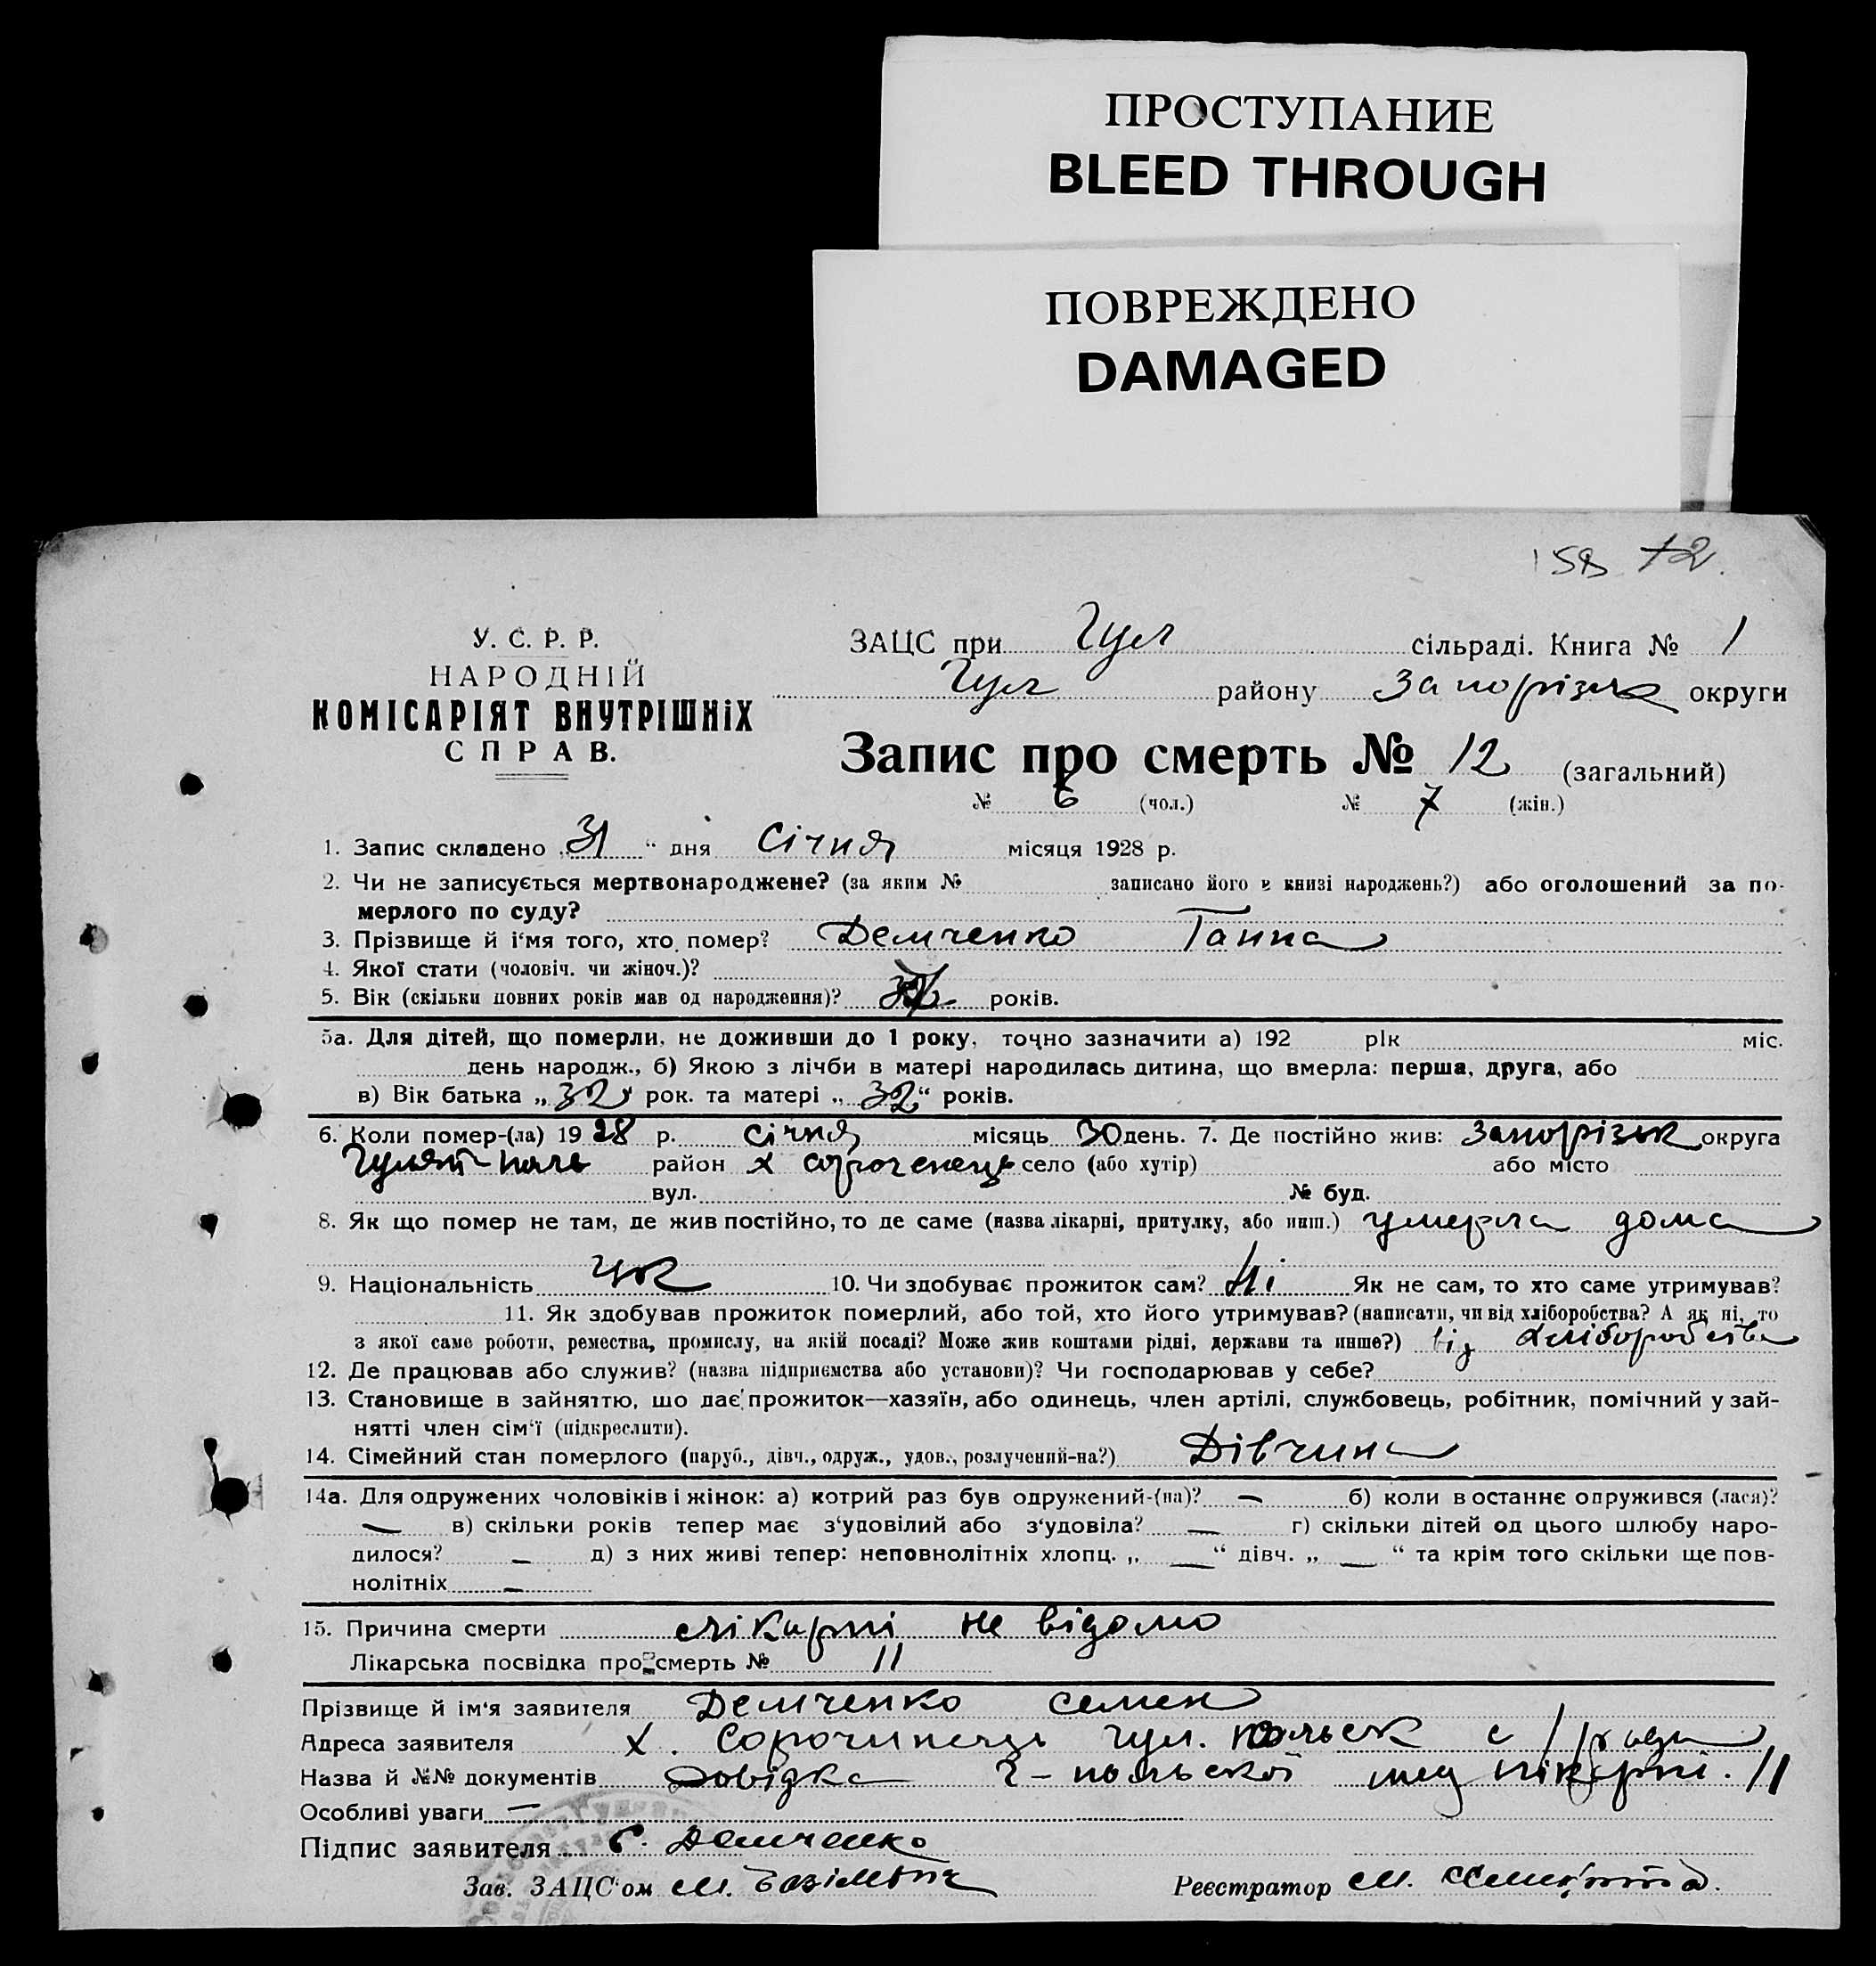 ПРОСТУПАНИЕ
BLEED THROUGH
ПОВРЕЖДЕНО
DAMAGED
У. С. Р. Р.
НАРОДНІЙ
КОМІСАРІЯТ ВНУТРІШНІХ
СПРАВ.
ЗАЦС при Гул сільраді. Книга № 1
Гул району Запорізьк округи
Запис про смерть № 12 (загальний)
№ 6 (чол.) № 7 (жін.)
1. Запис складено „31“ дня Січня місяця 1928 р.
2. Чи не записується мертвонароджене? (за яким № записано його в книзі народжень?) або оголошений за по-
мерлого по суду?
3. Прізвище й і'мя того, хто помер? Демченко Ганна
4. Якої стати (чоловіч. чи жіноч.)?
5. Вік (скільки повних років мав од народження)? років.
5а. Для дітей, що померли, не доживши до 1 року, точно зазначити а) 192 рік міс.
день народж., б) Якою з лічби в матері народилась дитина, що вмерла: перша, друга, або
в) Вік батька „32“ рок. та матері „32“ років.
6. Коли помер-(ла) 1928 р. січня місяць 30 день. 7. Де постійно жив: Запорізьк округа
Гуляй-поль район х село (або хутір) або місто
вул. № буд.
8. Як що помер не там, де жив постійно, то де саме (назва лікарні, притулку, або инш.) умерла дома
9. Національність Укр 10. Чи здобуває прожиток сам? Ні Як не сам, то хто саме утримував?
11. Як здобував прожиток померлий, або той, хто його утримував? (написати, чи від хліборобства? А як ні, то
з якої саме роботи, ремества, промислу, на якій посаді? Може жив коштами рідні, держави та инше?) від хліборобства
12. Де працював або служив? (назва підприємства або установи)? Чи господарював у себе?
13. Становище в зайняттю, що дає прожиток—хазяїн, або одинець, член артілі, службовець, робітник, помічний у зай-
нятті член сім'ї (підкреслити).
14. Сімейний стан померлого (паруб., дівч., одруж., удов., розлучений-на?) Дівчина
14а. Для одружених чоловіків і жінок: а) котрий раз був одружений-(на)? — б) коли в останнє одружився (лася)?
— в) скільки років тепер має з'удовілий або з'удовіла? — г) скільки дітей од цього шлюбу наро-
дилося? — д) з них живі тепер: неповнолітніх хлопц. „ — “ дівч. „ — “ та крім того скільки ще пов-
нолітніх —
15. Причина смерти лікарні не відомо
Лікарська посвідка про смерть № 11
Прізвище й ім'я заявителя Демченко Семен
Адреса заявителя х. Сорочинець Гул. Польск с/ради
Назва й №№ документів Довідка Г-польскої мед лікарні. 11
Особливі уваги —
Підпис заявителя С. Демченко
Зав. ЗАЦС'ом М.
Реєстратор М.